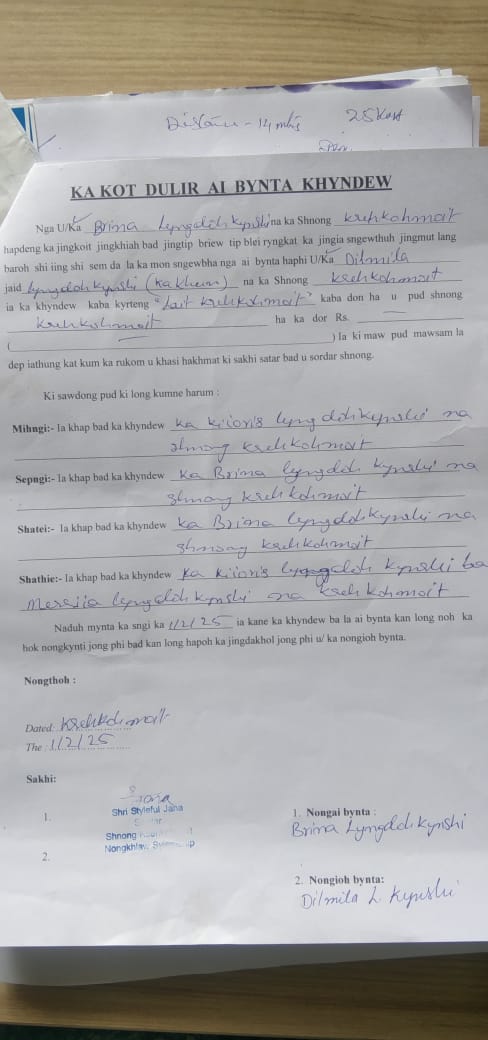 Distān - 14 mks 25 Kart
KA KOT DULIR AI BYNTA KHYNDEW
Nga U/Ka Brina Lyngdoh kynshi na ka Shnong Krehkohmait
hapdeng ka jingkoit jingkhiah bad jingtip briew tip blei ryngkat ka jingia sngewthuh jingmut lang
baroh shi iing shi sem da la ka mon sngewbha nga ai bynta haphi U/Ka Dilmila
jaid Lyngdoh kynshi (Ka kheun) na ka Shnong Krehkohmait
ia ka khyndew kaba kyrteng "Lait Krehkohmait" kaba don ha u pud shnong
Krehkohmait ha ka dor Rs.
( ) la ki maw pud mawsam la
dep iathung kat kum ka rukom u khasi hakhmat ki sakhi satar bad u sordar shnong.
Ki sawdong pud ki long kumne harum :
Mihngi:- Ia khap bad ka khyndew ka kitoris lyngdoh kynshi na
shnong Krehkohmait
Sepngi:- Ia khap bad ka khyndew Ka Brina lyngdoh kynshi na
shnong Krehkohmait
Shatei:- Ia khap bad ka khyndew ka Brina lyngdoh kynshi na
shnong Krehkohmait
Shathie:- Ia khap bad ka khyndew ka kitoris lyngdoh kynshi ba
lyngdoh kynshi na Krehkohmait
Naduh mynta ka sngi ka 1/2/25 ia kane ka khyndew ba la ai bynta kan long noh ka
hok nongkynti jong phi bad kan long hapoh ka jingdakhol jong phi u/ ka nongioh bynta.
Nongthoh :
Dated: Krehkohmait
The : 1/2/25
Sakhi:
1.
Shri Styleful Jana
Shnong
Nongkhlaw
2.
1. Nongai bynta :
Brina Lyngdoh kynshi
2. Nongioh bynta:
Dilmila L kynshi